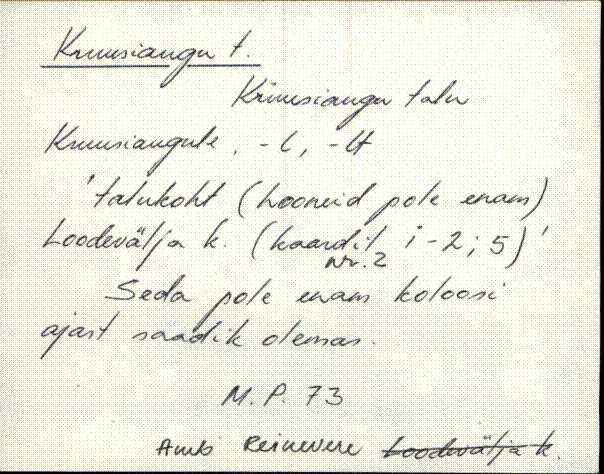 Kruusiangu t.
Krùusiangu talu
Kruusiangule, -l, -lt
'talukoht (hooneid pole enam)
Loodevälja k. (kaardil i-2; 5)'
nr. 2
Seda pole enam koloosi
ajast saadik olemas.
M.P. 73
Amb Reinevere Loodevälja k.